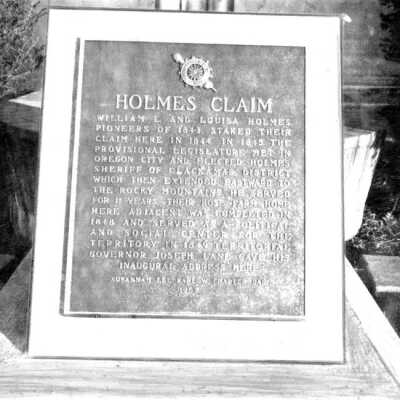 HOLMES CLAIM
WILLIAM L. AND LOUISA HOLMES,
PIONEERS OF 1843, STAKED THEIR
CLAIM HERE IN 1844. IN 1845 THE
PROVISIONAL LEGISLATURE MET IN
OREGON CITY AND ELECTED HOLMES
SHERIFF OF CLACKAMAS DISTRICT
WHICH THEN EXTENDED EASTWARD TO
THE ROCKY MOUNTAINS. HE SERVED
FOR 11 YEARS. THEIR ROSE FARM HOME
HERE ADJACENT WAS COMPLETED IN
1848 AND SERVED AS A POLITICAL
AND SOCIAL CENTER OF THE
TERRITORY. IN 1849 TERRITORIAL
GOVERNOR JOSEPH LANE GAVE HIS
INAUGURAL ADDRESS HERE.
SUSANNAH LEE CHAPTER